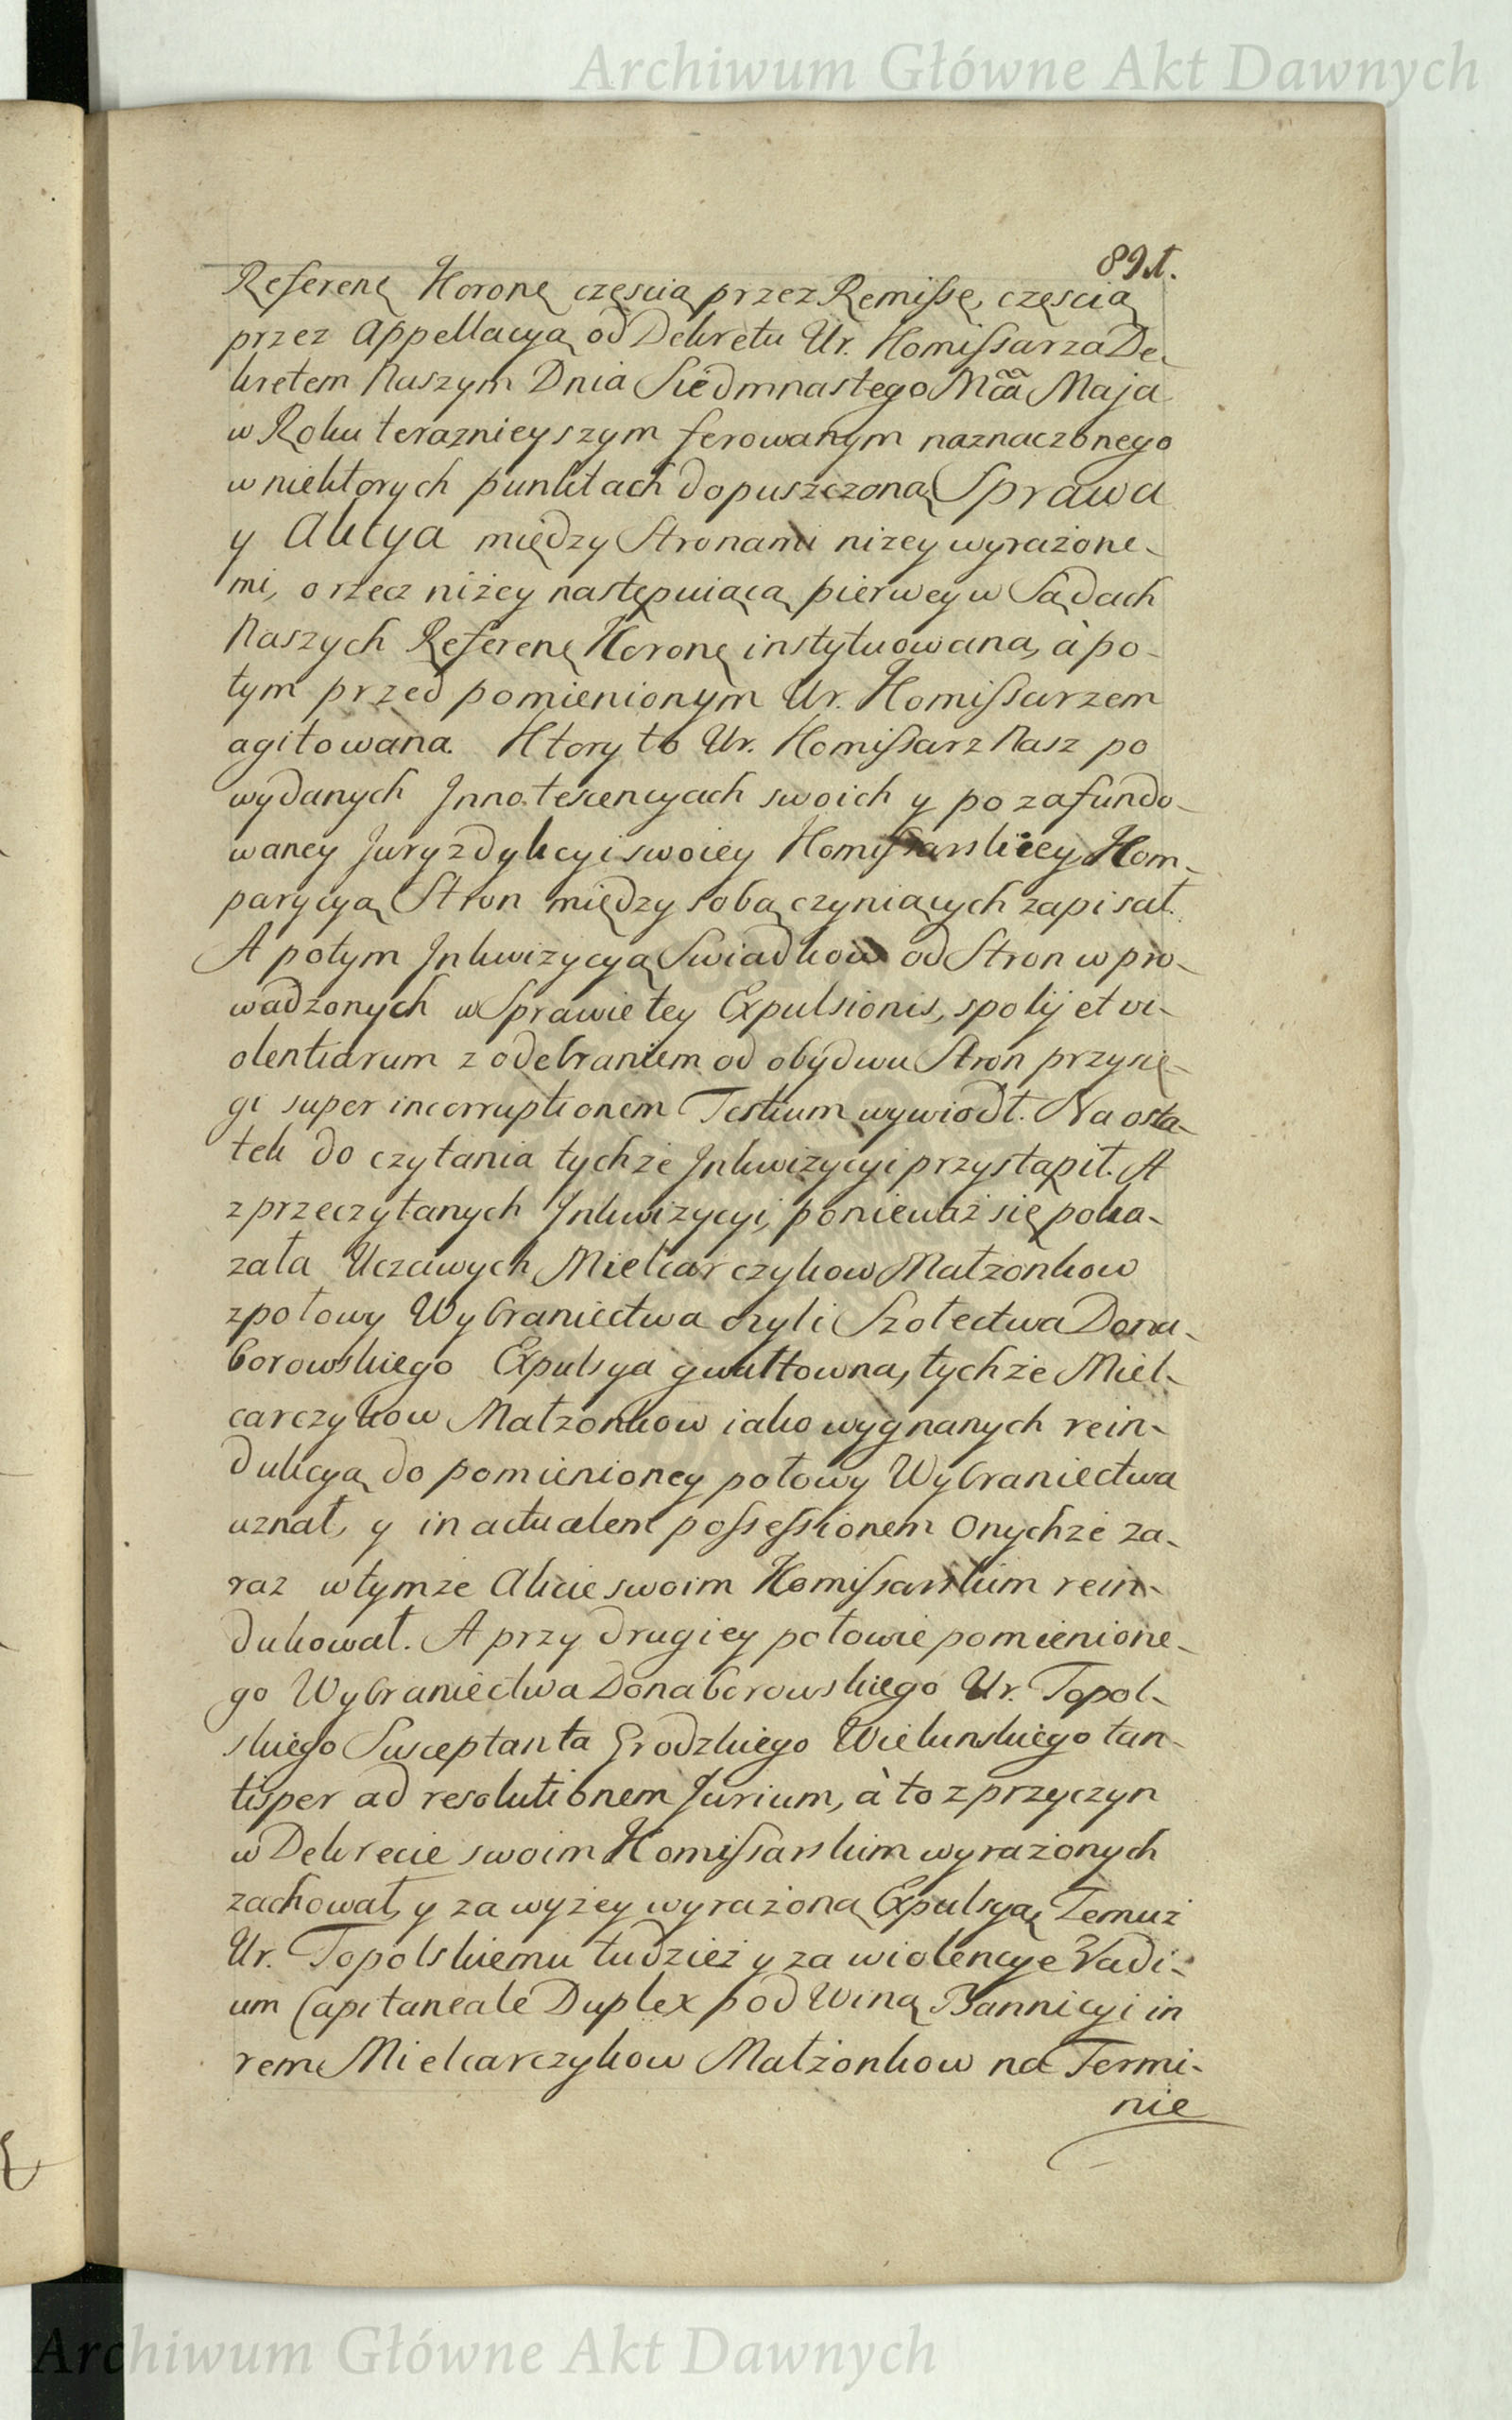 Archiwum Główne Akt Dawnych
891.
Referenę Koronę częscią przez Remissę, częscią
przez Appellacyą od Dekretu Ur. Komissarza De-
kretem Naszym Dnia Siedmnastego Mãã Maja
w Roku teraznieyszym ferowanym naznaczonego
w niektorych punktach dopuszczoną Sprawa
y Akcya między Stronami niżey wyrażone-
mi, o rzecz niżey następuiącą pierwey w Sądach
Naszych Referenę Koronę instytuowana, à po-
tym przed pomienionym Ur. Komissarzem
agitowana. Ktory to Ur. Komissarz Nasz po
wydanych Innotescencyach swoich y po zafundo-
waney Juryzdykcyi swoiey Komissarskiey Kom-
parycyą Stron między sobą czyniących zapisał.
A potym Inkwizycyą Swiadkow od Stron wpro-
wadzonych w Sprawie tey Expulsionis, spolij et vi-
olentiarum z odebraniem od obydwu Stron przysię-
gi super incorruptionem Testium wywiodł. Na osta-
tek do czytania tychże Inkwizycyi przystąpił. A
z przeczytanych Inkwizycyi, ponieważ się poka-
zała Uczciwych Mielcarczykow Małżonkow
z połowy Wybraniectwa czyli Szołectwa Dona-
borowskiego Expulsya gwałtowna, tychże Miel-
carczykow Małżonkow iako wygnanych rein-
dukcyą do pomienioney połowy Wybraniectwa
uznał, y in actualem possessionem Onychże za-
raz w tymże Akcie swoim Komissarskim rein-
dukował. A przy drugiey połowie pomienione-
go Wybraniectwa Donaborowskiego Ur. Topol-
skiego Susceptanta Grodzkiego Wielunskiego tan-
tisper ad resolutionem Jurium, à to z przyczyn
w Dekrecie swoim Komissarskim wyrażonych
zachował, y za wyżey wyrażoną Expulsyą, Temuż
Ur. Topolskiemu tudzież y za wiolencye Vadi-
um Capitaneale Duplex pod Winą Bannicyi in
rem Mielcarczykow Małżonkow na Termi-
nie
Archiwum Główne Akt Dawnych